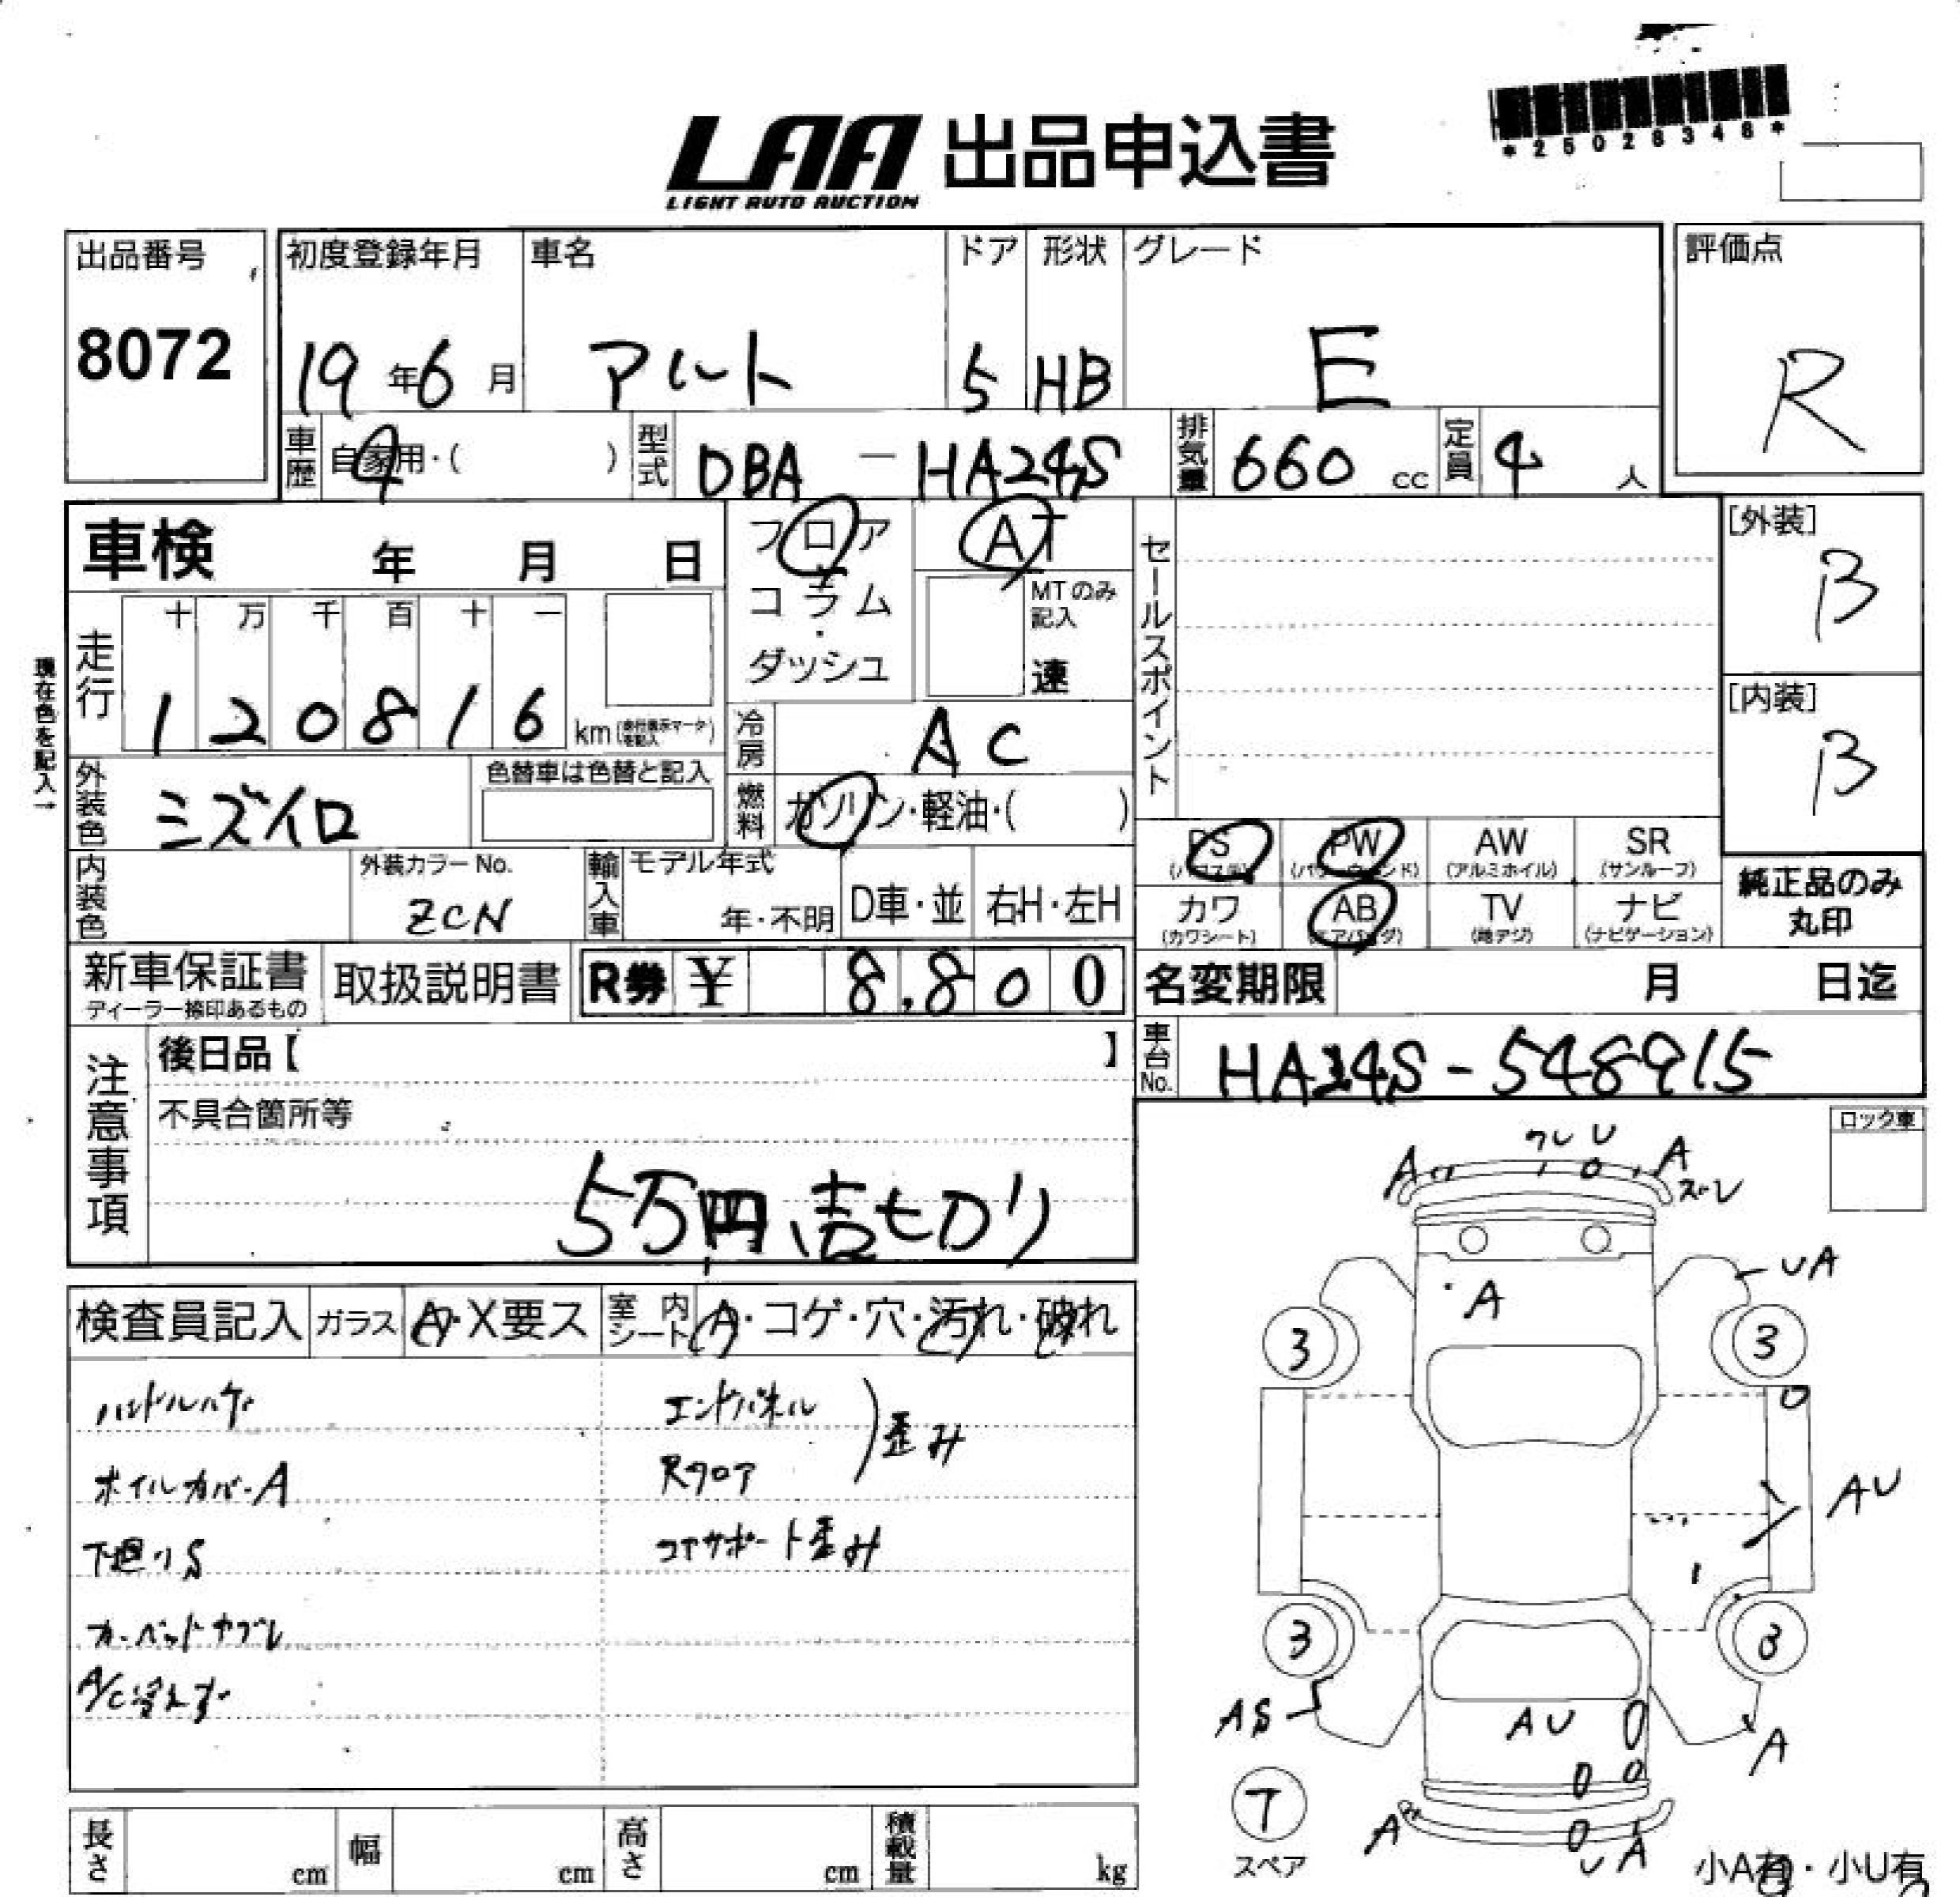 *25028348*
LAA 出品申込書
LIGHT AUTO AUCTION
出品番号 初度登録年月 車名 ドア 形状 グレード 評価点
8072 19年6月 アルト 5 HB E R
車歴 自家用・( ) 型式 DBA - HA24S 排気量 660 cc 定員 4 人
車検 年 月 日 フロア AT
コラム・ MTのみ記入
ダッシュ 速
セールスポイント
[外装] B
[内装] B
走行 十 万 千 百 十 一
1 2 0 8 1 6 km
現在色を記入→
冷房 AC
外装色 ミズイロ 色替車は色替と記入
燃料 ガソリン・軽油・( )
PS PW AW SR
(パワステ) (パワーウィンド) (アルミホイル) (サンルーフ)
カワ AB TV ナビ
(カワシート) (エアバッグ) (地デジ) (ナビゲーション)
純正品のみ
丸印
内装色 外装カラーNo. ZCN 輸入車 モデル年式 年・不明 D車・並 右H・左H
新車保証書 取扱説明書 R券 ¥ 8,800 名変期限 月 日迄
ディーラー捺印あるもの
車台No. HA24S-548915
注意事項
後日品【 】
不具合箇所等
5万円 売切り
ロック車
検査員記入 ガラス A・X要ス 室内シート A・コゲ・穴・汚れ・破れ
ハンドルハゲ エンドパネル
ホイルカバーA Rフロア
歪み
下廻りS コアサポート歪み
カーペットヤブレ
A/C冷えず
ワレ U
A A
ズレ
UA
A
3 3
AU
3 3
AS AU A
T
スペア
A U A
小A有・小U有
長さ cm 幅 cm 高さ cm 積載量 kg